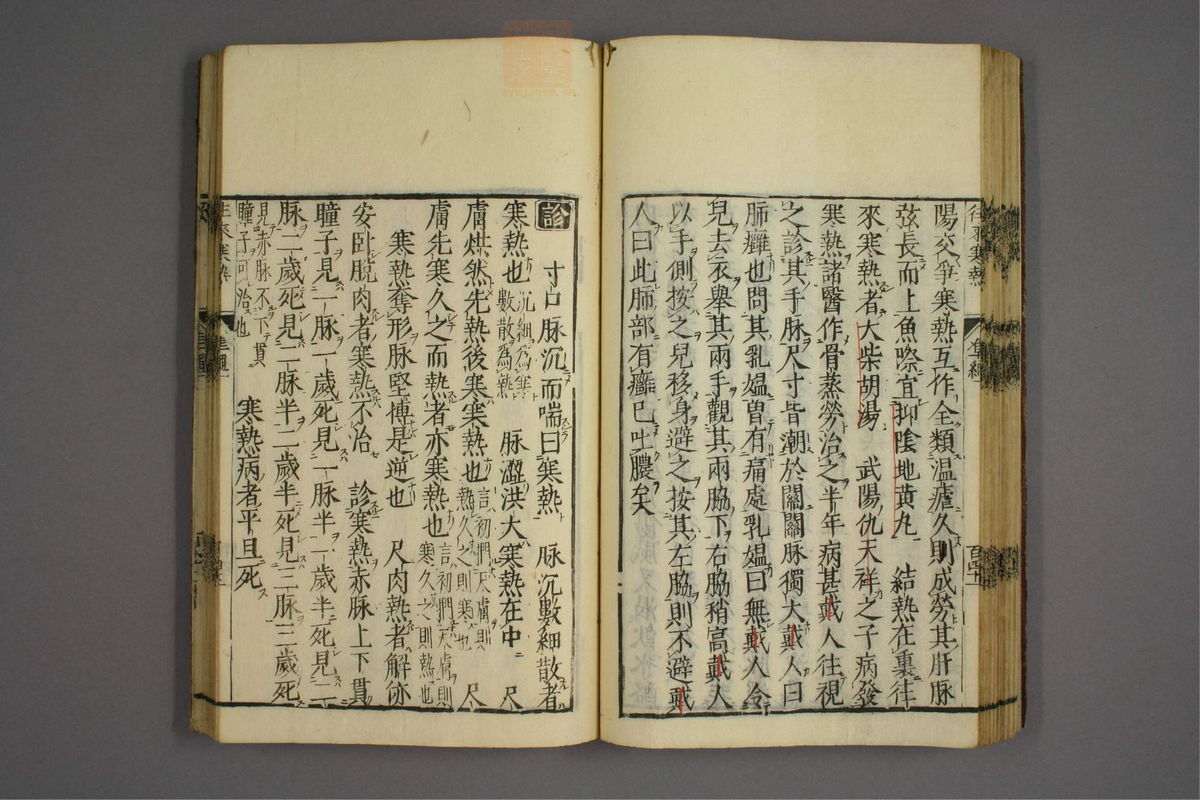 陽交爭寒熱互作全類温瘧久則成勞其肝脉
弦長而上魚際宜抑陰地黄丸　結熱在裏往
來寒熱者大柴胡湯　武陽仇天祥之子病發
寒熱諸醫作骨蒸勞治之半年病甚戴人往視
之診其手脉尺寸皆潮於關關脉獨大戴人曰
肺癰也問其乳媪曽有痛處乳媪曰無戴人令
兒去衣舉其兩手觀其兩脇下右脇稍高戴人
以手側按之兒移身避之按其左脇則不避戴
人曰此肺部有癰已吐膿矣
診　寸口脉沉而喘曰寒熱　脉沉數細散者
寒熱也沉細為寒數散為熱　脉澀洪大寒熱在中　尺
膚烘然先熱後寒寒熱也言初捫尺膚則熱久之則寒也　尺
膚先寒久之而熱者亦寒熱也言初捫尺膚則寒久之則熱也
寒熱奪形脉堅搏是逆也　尺肉熱者解㑊
安卧脱肉者寒熱不治　診寒熱赤脉上下貫
瞳子見一脉一歲死見一脉半一歲半死見二
脉二歲死見二脉半二歲半死見三脉三歲死
見赤脉不下貫瞳子可治也　寒熱病者平旦死
往來寒熱